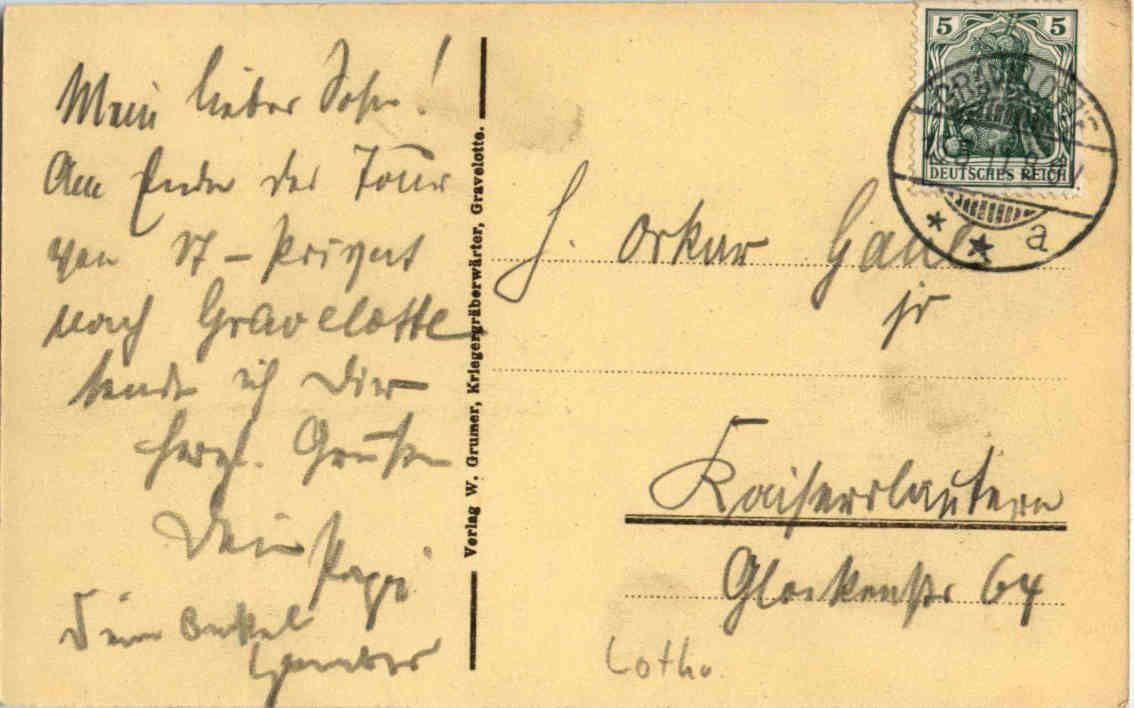 Mein lieber Sohn!
Am Ende der Tour
von St-Privat
nach Gravelotte
sende ich Dir
herzl. Grüße
Dein Papa
Dein Onkel
Verlag W. Grumer, Kriegergräberwärter, Gravelotte.
5 5
DEUTSCHES REICH
GRAVELOTTE
* * a
H. Oskar Gaul
jr
Kaiserslautern
Glockenstr 64
Lothr.